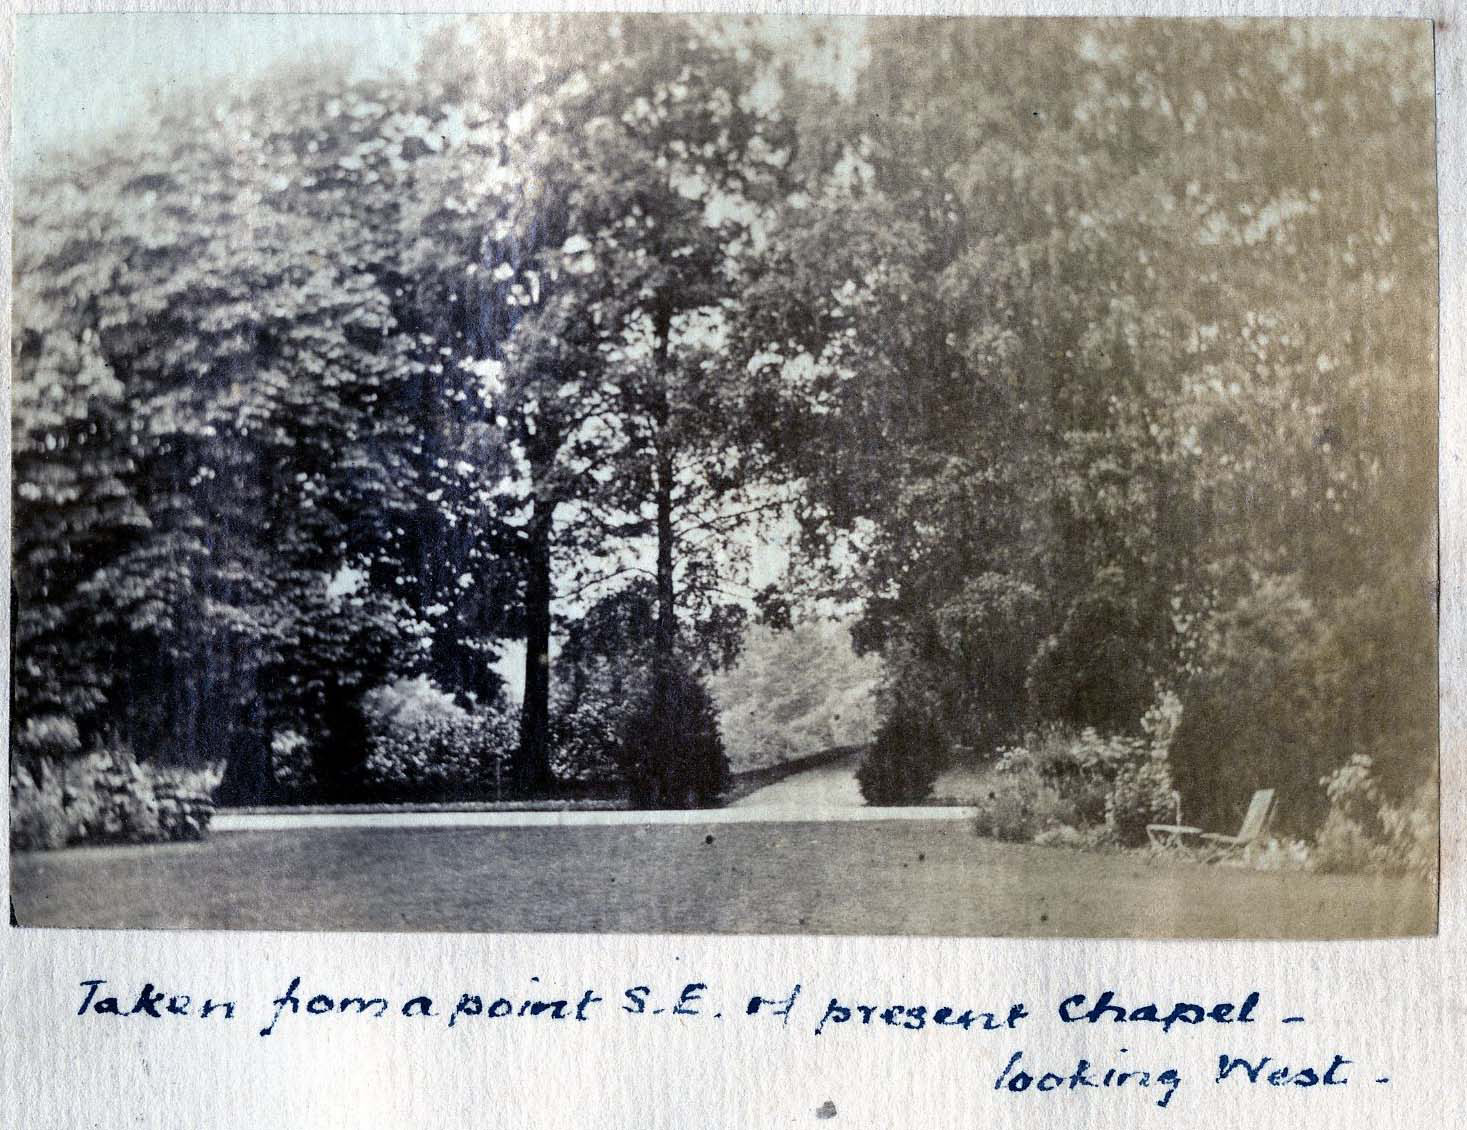 Taken from a point S.E. of present Chapel -
looking West -